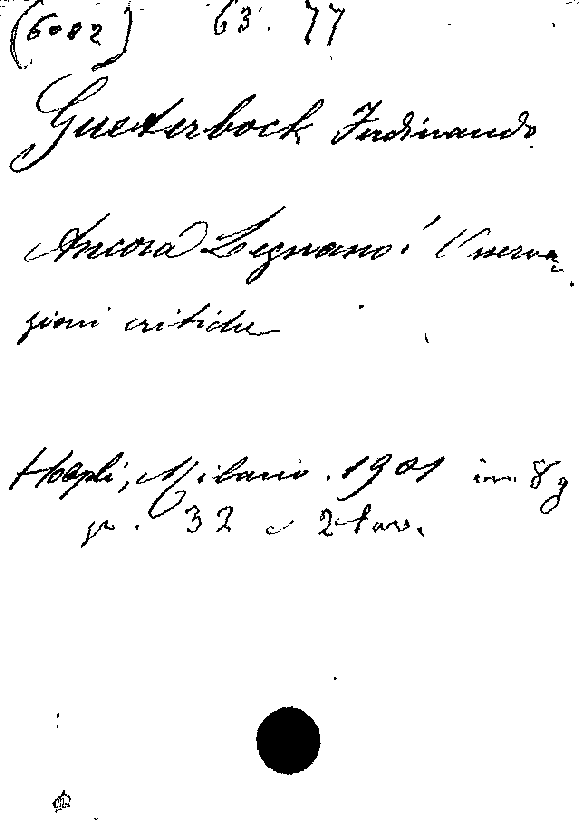 (6002) 63. 77
Gueterbock Ferdinando
Ancora Legnano! Osserva=
zioni critiche
Hoepli, Milano. 1901 in 8g
p. 32 e 2 tav.